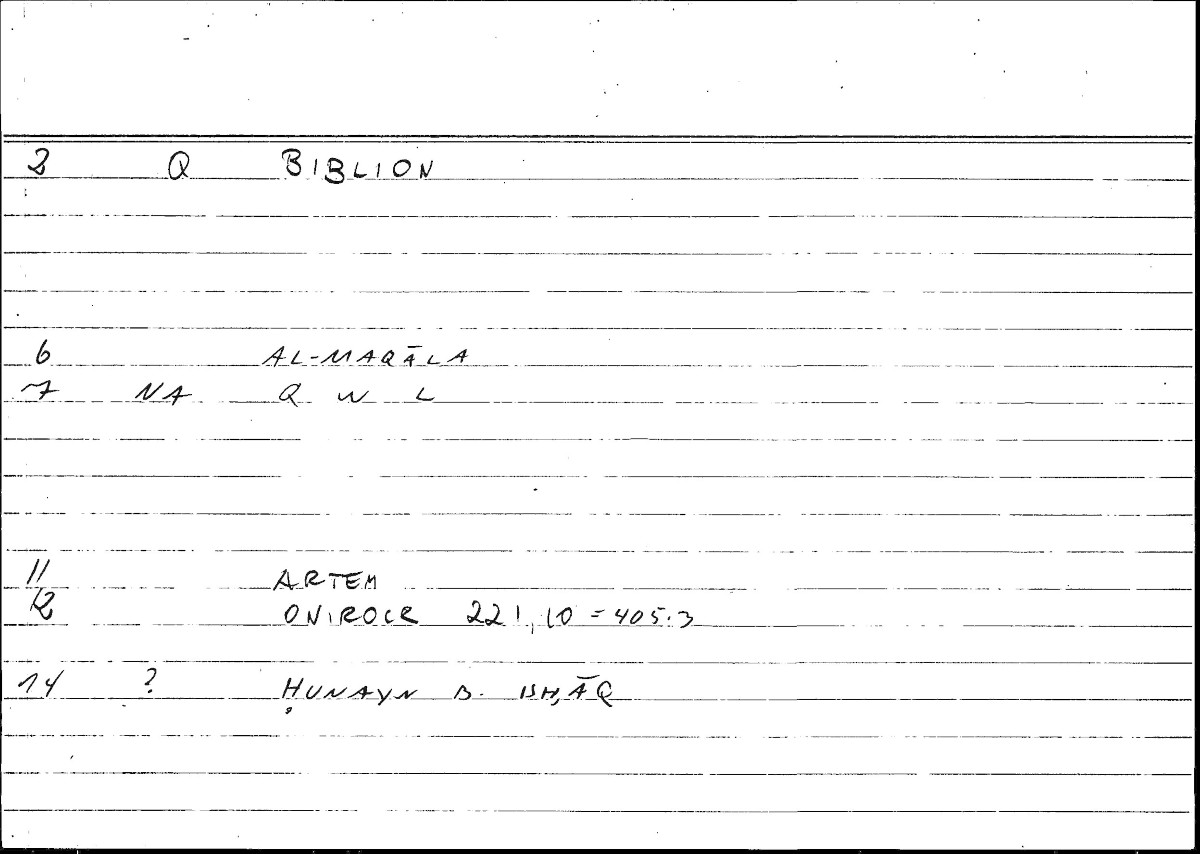 2 Q BIBLION
6 AL-MAQĀLA
7 NA Q W L
11 ARTEM
12 ONIROCR 221,10 = 405.3
14 ? ḤUNAYN B. ISḤĀQ